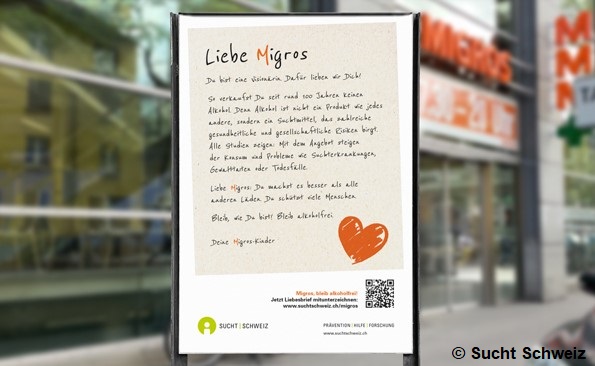 Liebe Migros
Du bist eine Visionärin. Dafür lieben wir Dich!
So verkaufst Du seit rund 100 Jahren keinen
Alkohol. Denn Alkohol ist nicht ein Produkt wie jedes
andere, sondern ein Suchtmittel, das zahlreiche
gesundheitliche und gesellschaftliche Risiken birgt.
Alle Studien zeigen: Mit dem Angebot steigen
der Konsum und Probleme wie Suchterkrankungen,
Gewalttaten oder Todesfälle.
Liebe Migros: Du machst es besser als alle
anderen Läden. Du schützt viele Menschen.
Bleib, wie Du bist! Bleib alkoholfrei.
Deine Migros-Kinder
Migros, bleib alkoholfrei!
Jetzt Liebesbrief mitunterzeichnen:
www.suchtschweiz.ch/migros
SUCHT | SCHWEIZ
PRÄVENTION | HILFE | FORSCHUNG
www.suchtschweiz.ch
MIGROS
M
M
M
TA
© Sucht Schweiz